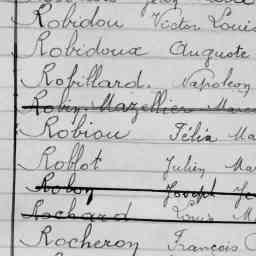 Robidou Victor Louis
Robidoux Auguste
Robillard. Napoléon
Robin Mazellier Marc
Robiou Félix Ma
Roblot Julien Mar
Robon Joseph Je
Rochard Louis M
Rocheron François